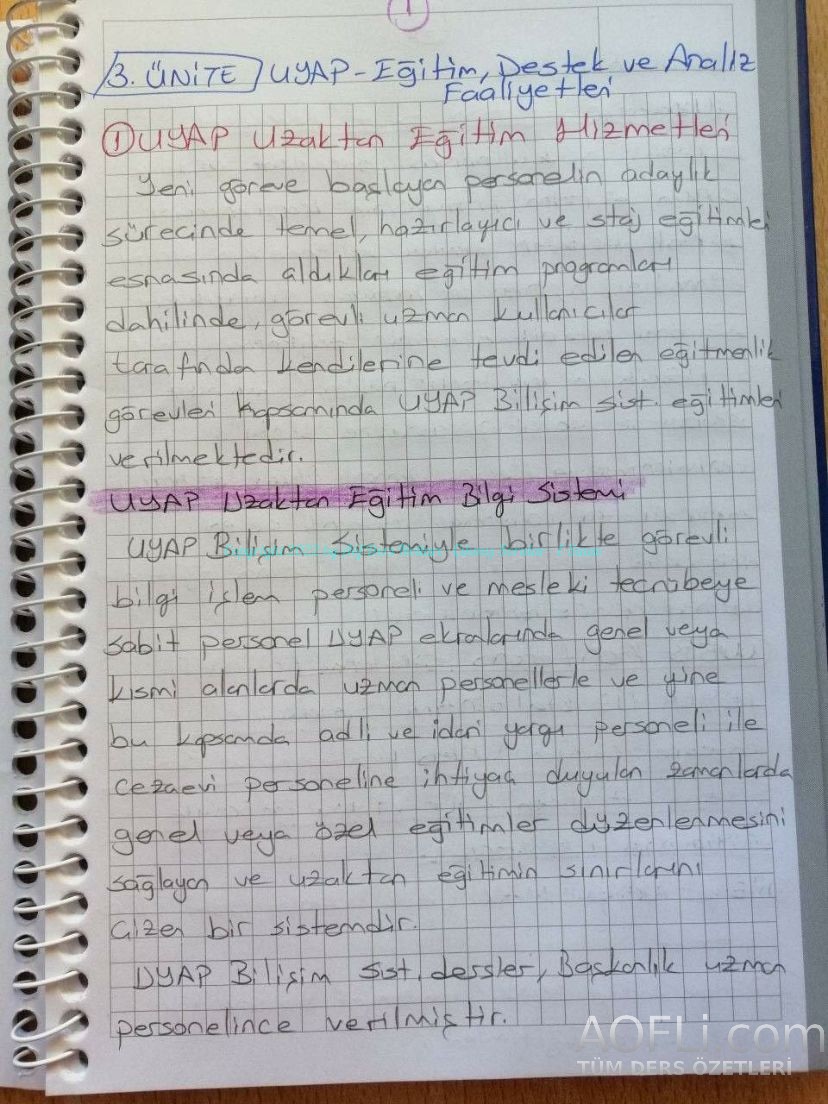 1
3. ÜNİTE UYAP-Eğitim, Destek ve Analiz
Faaliyetleri
① UYAP Uzaktan Eğitim Hizmetleri
Yeni göreve başlayan personelin adaylık
sürecinde temel, hazırlayıcı ve staj eğitimleri
esnasında aldıkları eğitim programları
dahilinde, görevli uzman kullanıcılar
tarafından kendilerine tevdi edilen eğitmenlik
görevleri kapsamında UYAP Bilişim sist. eğitimleri
verilmektedir.
UYAP Uzaktan Eğitim Bilgi Sistemi
UYAP Bilişim Sistemiyle birlikte görevli
bilgi işlem personeli ve mesleki tecrübeye
sabit personel UYAP ekranlarında genel veya
kısmi alanlarda uzman personellerle ve yine
bu kapsamda adli ve idari yargı personeli ile
cezaevi personeline ihtiyaç duyulan zamanlarda
genel veya özel eğitimler düzenlenmesini
sağlayan ve uzaktan eğitimin sınırlarını
çizen bir sistemdir.
UYAP Bilişim sist. dersler, Başkanlık uzman
personelince verilmiştir.
AOFLi.com
TÜM DERS ÖZETLERİ